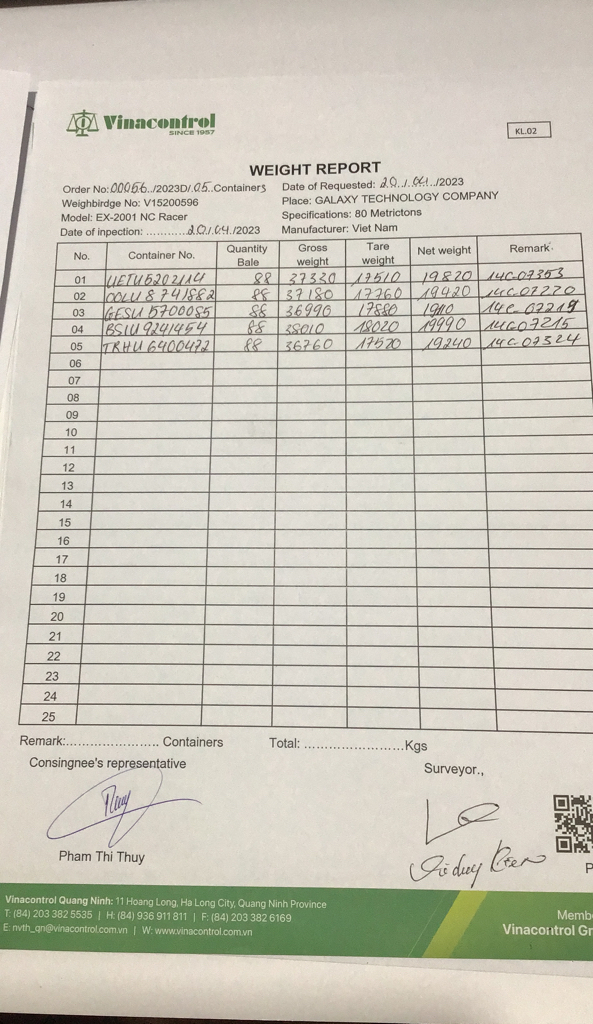 Vinacontrol
SINCE 1957
KL.02
WEIGHT REPORT
Order No:00056../2023D/.05..Containers Date of Requested: 20../.04../2023
Weighbirdge No: V15200596 Place: GALAXY TECHNOLOGY COMPANY
Model: EX-2001 NC Racer Specifications: 80 Metrictons
Date of inpection: ............20./.04./2023 Manufacturer: Viet Nam
No. Container No. Quantity Bale Gross weight Tare weight Net weight Remark
01 UETU5202114 88 37330 17510 19820 14C07353
02 OOLU 8741882 88 37180 17760 19420 14C07220
03 GESU 5700085 88 36990 17880 14C
04 BSIU 9241454 88 38010 18020 19990 14C07215
05 TRHU 6400472 88 36760 17520 19240 14C07324
06
07
08
09
10
11
12
13
14
15
16
17
18
19
20
21
22
23
24
25
Remark:....................... Containers Total: ........................Kgs
Consingnee's representative Surveyor.,
Thuy
Pham Thi Thuy
Vinacontrol Quang Ninh: 11 Hoang Long, Ha Long City, Quang Ninh Province
T: (84) 203 382 5535 | H: (84) 936 911 811 | F: (84) 203 382 6169
E: nvth_qn@vinacontrol.com.vn | W: www.vinacontrol.com.vn
Memb
Vinacontrol Gr